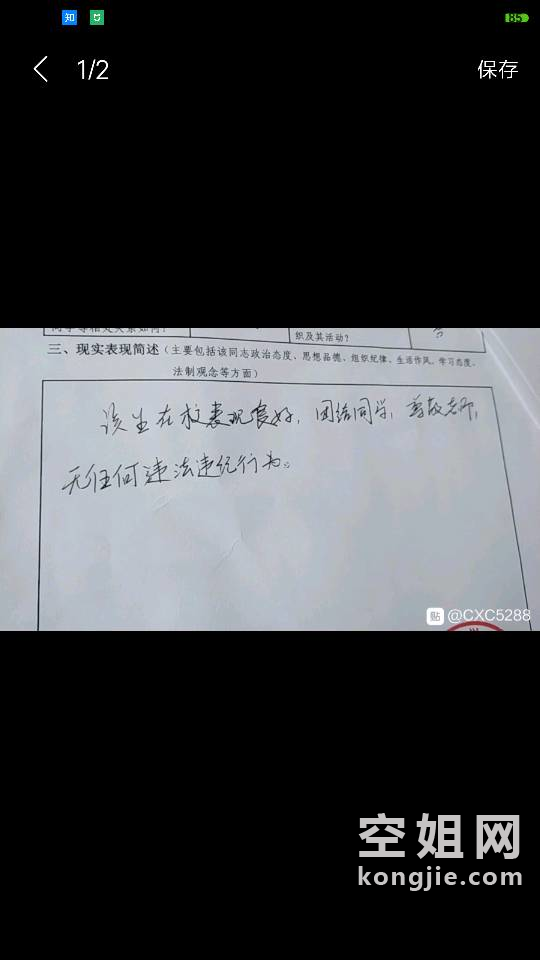 知
85
1/2
保存
织及其活动?
否
三、现实表现简述(主要包括该同志政治态度、思想品德、组织纪律、生活作风、学习态度、
法制观念等方面)
该生在校表现良好,团结同学,尊敬老师,
无任何违法违纪行为。
贴 @CXC5288
空姐网
kongjie.com